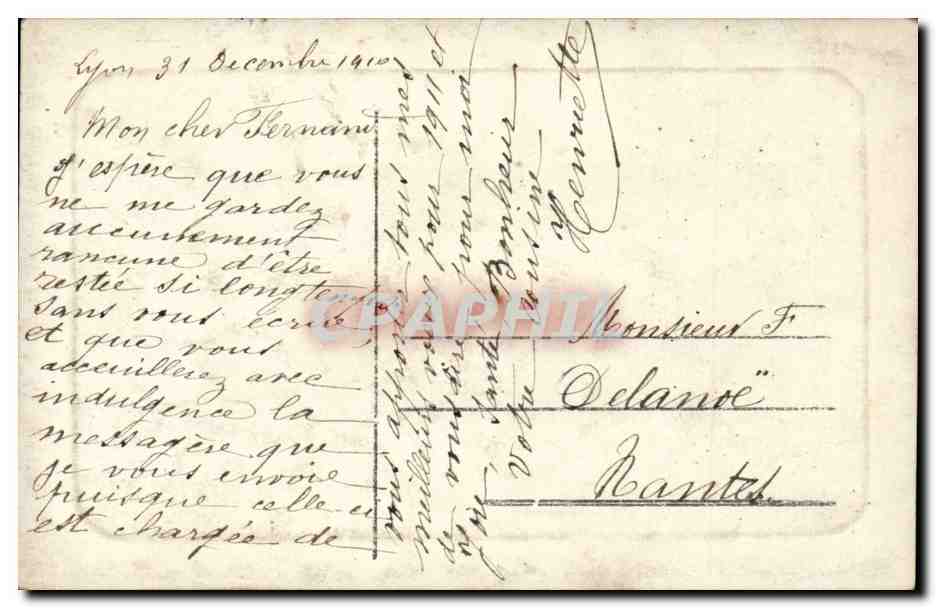 Lyon 31 Decembre 1910
Mon cher Fernand
J'espère que vous
ne me gardez
aucunement
rancune d'être
restée si longtemps
sans vous écrire
et que vous
acceuillerez avec
indulgence la
messagère que
je vous envoie
puisque celle ci
est chargée de
vous apporter tous mes
meilleurs vœux pour 1911 et
de vous dire pour moi
Joie, Santé, Bonheur
Votre cousine
Henriette
Monsieur F
Delanoë
Nantes.
CPAPHIL